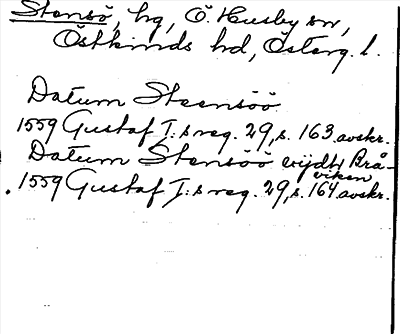 Stensö, hg, Ö. Husby sn,
Östkinds hd, Österg. l.
Datum Steensöö
1559 Gustaf I:s reg. 29, s. 163 avskr.
Datum Stensöö wijdh Brå-
viken
1559 Gustaf I:s reg. 29, s. 164 avskr.